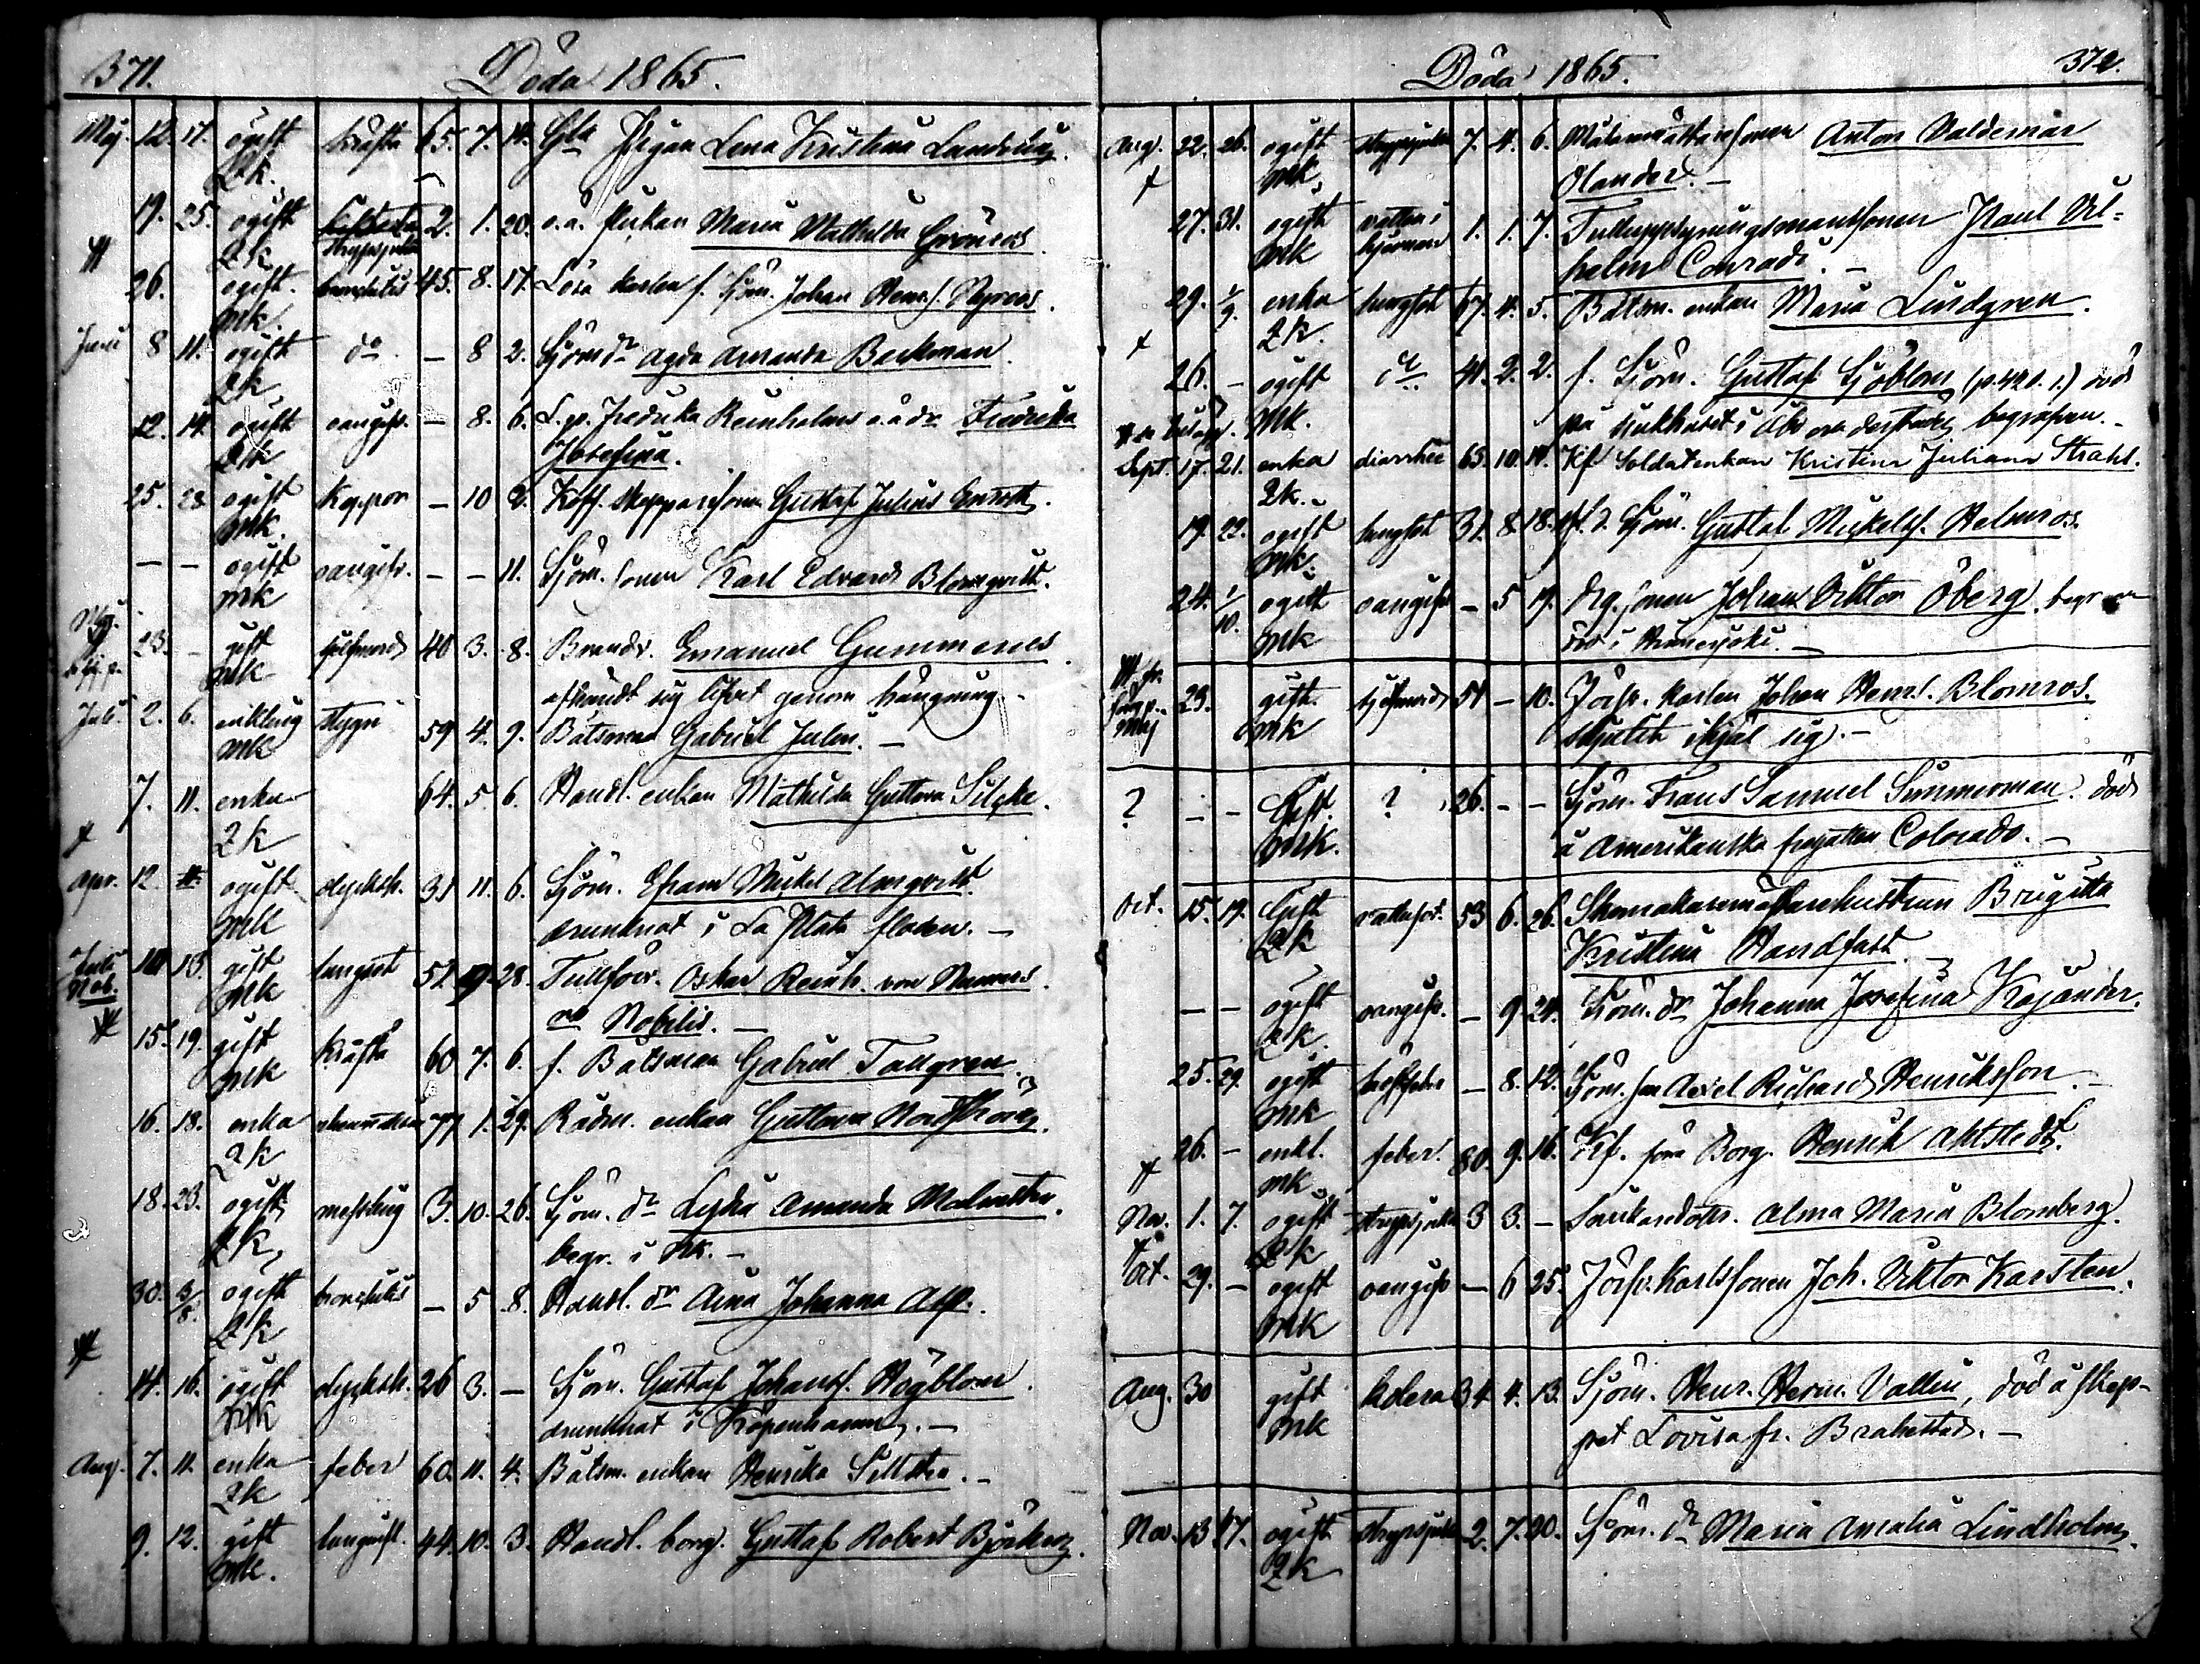 371. Döda 1865.
Maj. 12. 17. ogift kräfta 65. 7. 14. Gla Pigan Lena Kristina Lundvig.
Qk.
19. 25. ogift 2. 1. 20. o.ä. flickan Maria Mathilda Grönros
Qk strypsjuka
26. ogift bronchitis 45. 8. 17. Lösa karlen f. Sjöm. Johan Henr. Nyroos.
mk.
Juni 8 11. ogift do. — 8 2. Sjöm dr Agda Amanda Beckman.
Qk
12. 14. ogift oangifv. — 8. 6. L. p. Fredrika Reinholms o.ä dr Fredrika
Qk Josefina.
25. 28 ogift Koppor — 10 2. Koff. skepparsonen Gustaf Julius Enroth.
mk.
— — ogift oangifv. — — 11. Sjöm. sonen Karl Edvard Blomqvist.
mk
Maj.
23. — gift sjelfmord 40 3. 8. Brandv. Emanuel Gummerus
mk afhändt sig lifvet genom hängning.
Juli 2. 6. enkling styng 59 4. 9. Båtsman Gabriel Julin. —
mk
7. 11. enka 64. 5 6. Handl. enkan Mathilda Gustava Silcke.
Qk
Apr. 12. ogift olycksh. 31 11. 6. Sjöm. Efraim Mickel Almqvist.
mk drunknat i La Plata floden. —
Juli 10 13. gift lungsot 52. 28. Tullförv. Oskar Reinh. von Numers.
Nob. mk Nobilis. —
15. 19. gift kräfta 60 7. 6. f. Båtsman Gabriel Tallgren.
mk
16. 18. enka 77 1. 29. Rådm. enkan Gustava Nordström.
Qk
18. 23. ogift messling 3. 10. 26. Sjöm. dr Lydia Amanda Malmsten.
Qk begr. i Nk. —
30. 3/8. ogift bronchitis — 5 8. Handl. dr Aina Johanna Alp.
Qk
14. 16. ogift olycksh. 26 3. — Sjöm. Gustaf Johansf. Högblom.
mk drunknat i Köpenhamn. —
Aug. 7. 11. enka feber 60. 11. 4. Båtsm. enkan Henrika Sillsten. —
Qk
9. 12. gift lungsot. 44. 10. 3. Handl. borg. Gustaf Robert Björkroz.
mk.
Döda 1865. 372.
Aug. 22. 26. ogift strypsjuka 7. 4. 6. Målaremästaresonen Anton Valdemar
mk Olander. —
27. 31. ogift vatten i 1. 1. 7. Tulluppsyningsmanssonen Paul Vil-
mk hjernan helm Conradi. —
29. 1/9. enka lungsot 67. 4. 5. Båtsm. enkan Maria Lindgren.
Qk.
26. — ogift do. 41. 2. 2. f. Sjöm. Gustaf Sjöblom död
mk. på sjukhuset i Åbo och derstädes begrafven. —
Sept. 17. 21. enka diarrhee 65. 10. 14. Kf Soldatenkan Kristina Juliana Strahl.
Qk.
19. 22. ogift lungsot 31. 8. 18. Sjöm. Gustaf Mickelsf. Helmros.
mk.
24. 1/10. ogift oangifv — 5 19. drg. sonen Johan Viktor Öberg, begr
mk
Maj 23. gift. sjelfmord 51 — 10. Jordfr. karlen Johan Henrs. Blomros.
mk skjutit ihjäl sig. —
? — — Gift. ? 26. — — Sjöm. Frans Samuel Simmerman. död
mk. å Amerikanska fregatten Colorado. —
Oct. 15. 19. Gift vattusot. 53 6. 26. Skomakaremästarehustrun Brigitta
Qk Kristina Handfast. —
— — ogift oangifv. — 9 24. Sjöm. dr Johanna Josefina Kajander.
Qk.
25. 29. ogift — 8. 12. Sjöm. son Axel Richard Henriksson. —
mk
26. — enkl. feber. 80. 9. 16. Kf. förra Borg. Henrik Ahlstedt.
mk
Nov. 1. 7. ogift strypsjuka 3 3. — Snickaredottr. Alma Maria Blomberg.
Qk
Oct. 29. — ogift oangifv — 6 25. Jordfr. Karlssonen Joh. Viktor Karsten.
mk
Aug. 30 gift kolera 34. 4. 13. Sjöm. Henr. Herm. Vallin, död å skep-
mk pet Lovisa fr. Brahestad. —
Nov. 13. 17. ogift strypsjuka 2. 7. 20. Sjöm. dr Maria Amalia Lindholm.
Qk